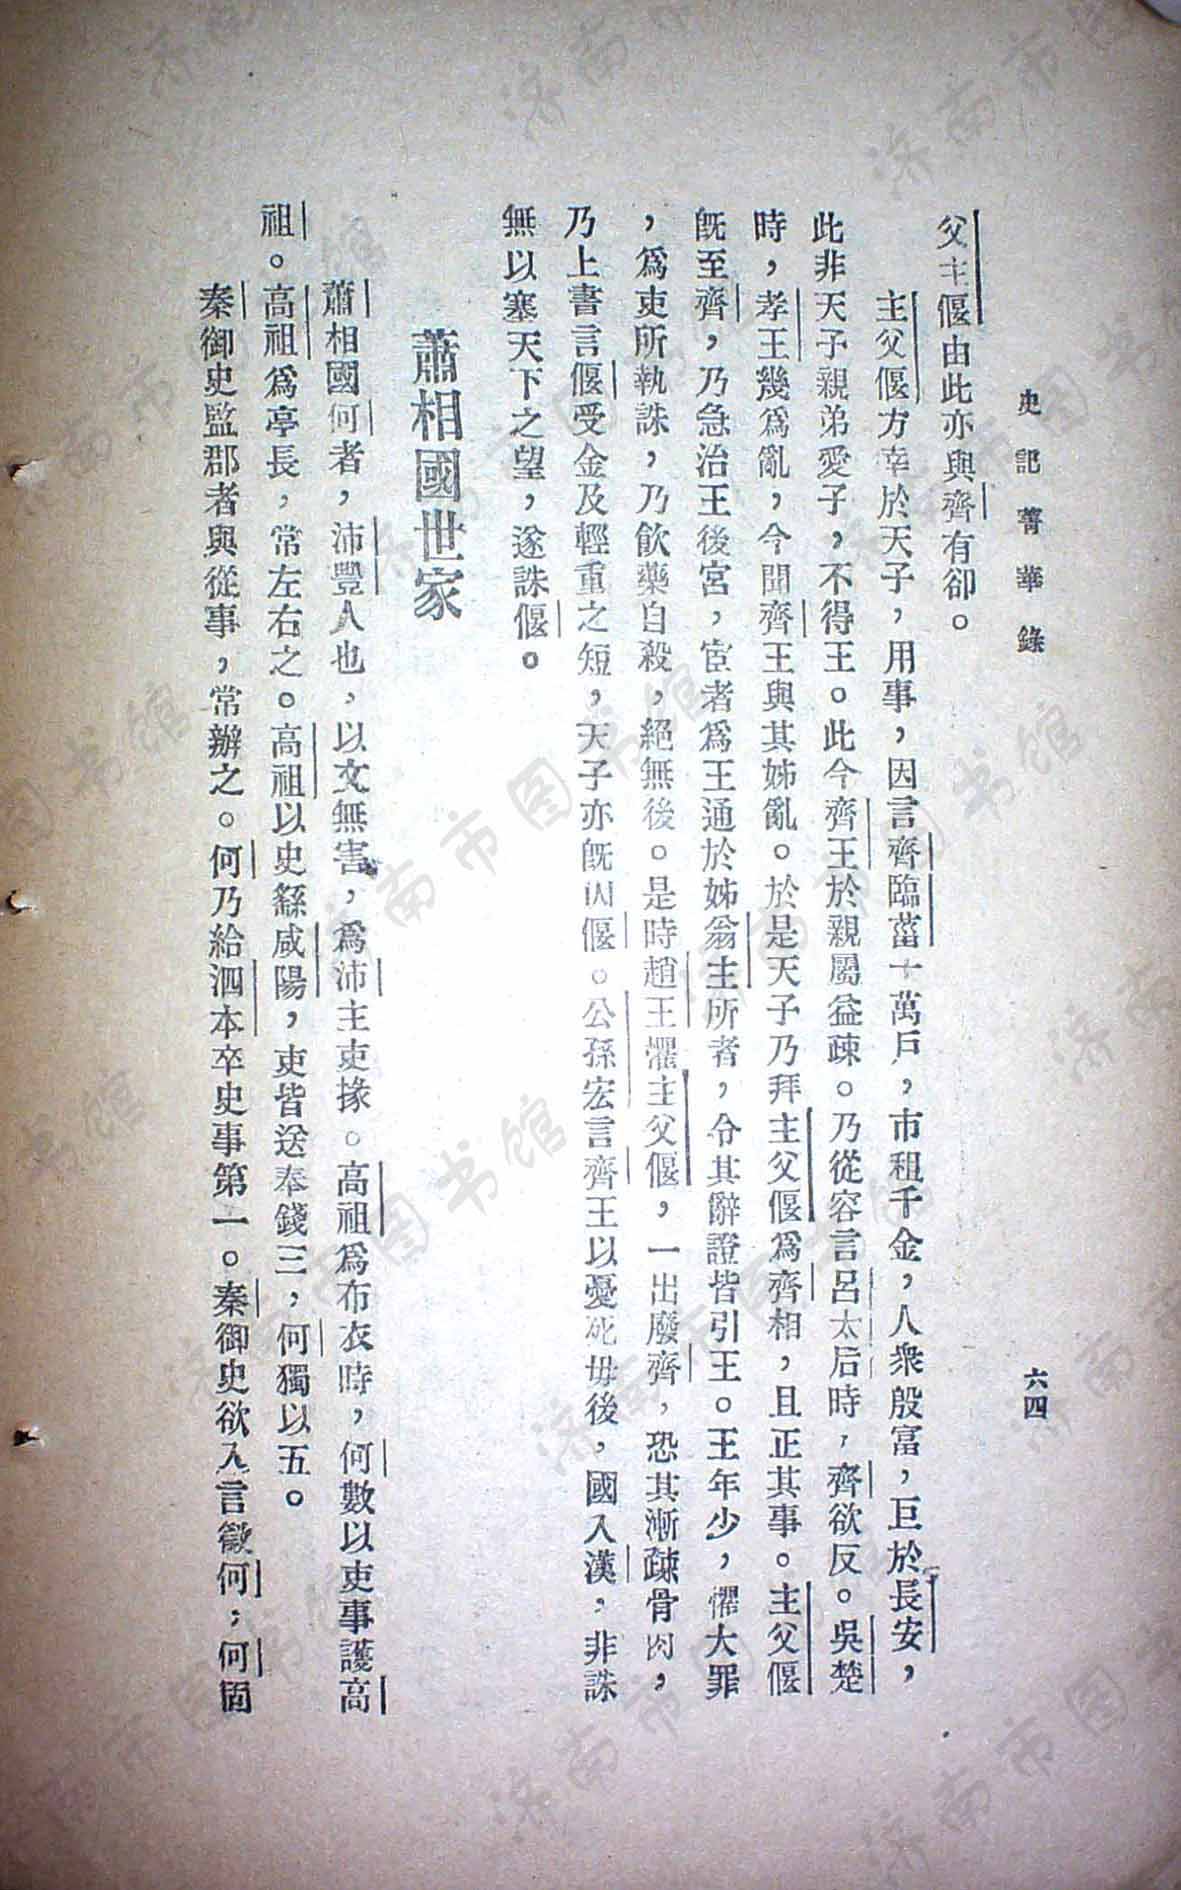 史記菁華錄
六四
父主偃由此亦與齊有卻。
主父偃方幸於天子，用事，因言齊臨菑十萬戶，市租千金，人衆殷富，巨於長安，
此非天子親弟愛子，不得王。此今齊王於親屬益疎。乃從容言呂太后時，齊欲反。吳楚
時，孝王幾爲亂，今聞齊王與其姊亂。於是天子乃拜主父偃爲齊相，且正其事。主父偃
旣至齊，乃急治王後宮，宦者爲王通於姊翁主所者，令其辭證皆引王。王年少，懼大罪
，爲吏所執誅，乃飮藥自殺，絕無後。是時趙王懼主父偃，一出廢齊，恐其漸疎骨肉，
乃上書言偃受金及輕重之短，天子亦旣囚偃。公孫宏言齊王以憂死毋後，國入漢，非誅
無以塞天下之望，遂誅偃。
蕭相國世家
蕭相國何者，沛豐人也，以文無害，爲沛主吏掾。高祖爲布衣時，何數以吏事護高
祖。高祖爲亭長，常左右之。高祖以史繇咸陽，吏皆送奉錢三，何獨以五。
秦御史監郡者與從事，常辦之。何乃給泗本卒史事第一。秦御史欲入言徵何，何固
济南市图书馆